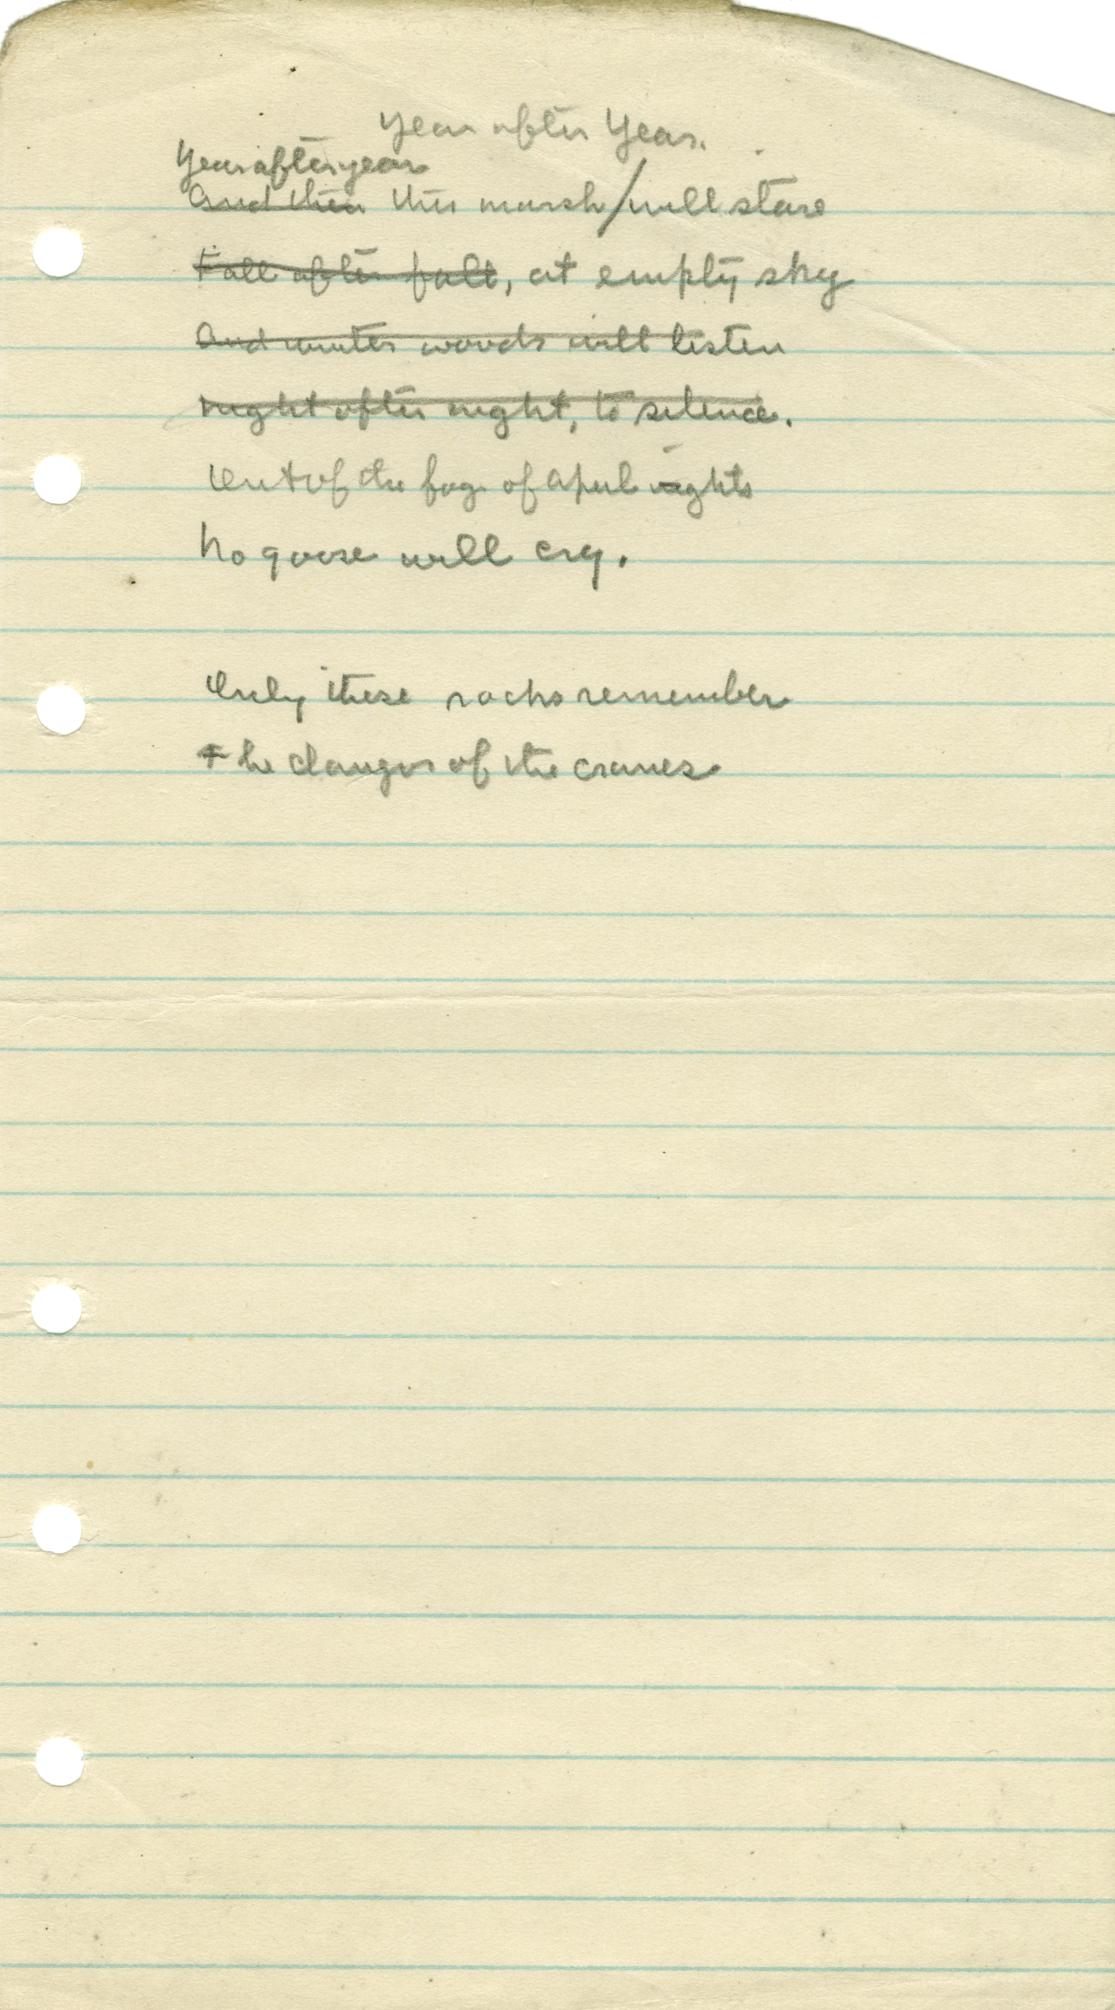 Year after Year.
Year after year
And then this marsh/will stare
Fall after fall, at empty sky
And winter woods will listen
night after night, to silence.
Out of the fog of April nights
No goose will cry.
Only these rocks remember
The clangor of the cranes